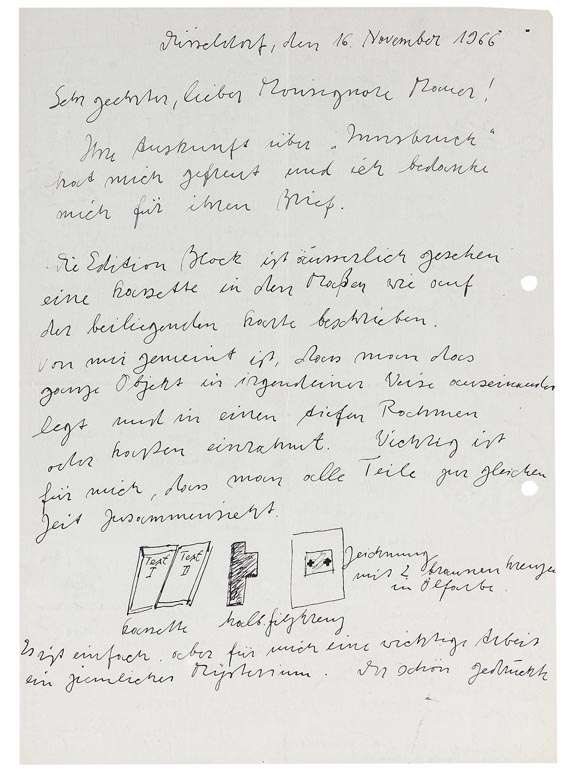 Düsseldorf, den 16. November 1966
Sehr geehrter, lieber Monsignore Mauer!
Ihre Auskunft über „Innsbruck“
hat mich gefreut und ich bedanke
mich für ihren Brief.
Die Edition Block ist äusserlich gesehen
eine Kassette in den Maßen wie auf
der beiliegenden Karte beschrieben.
Von mir gemeint ist, dass man das
ganze Objekt in irgendeiner Weise auseinander
legt und in einen tiefen Rahmen
oder Kasten einrahmt. Wichtig ist
für mich, dass man alle Teile zur gleichen
Zeit zusammensieht.
Text I
Text II
Kassette
halb. filzkreuz
Zeichnung
mit 2 braunen Kreuzen
in Ölfarbe.
Es ist einfach. aber für mich eine wichtige Arbeit
ein ziemliches Mysterium. Der schön gedruckte